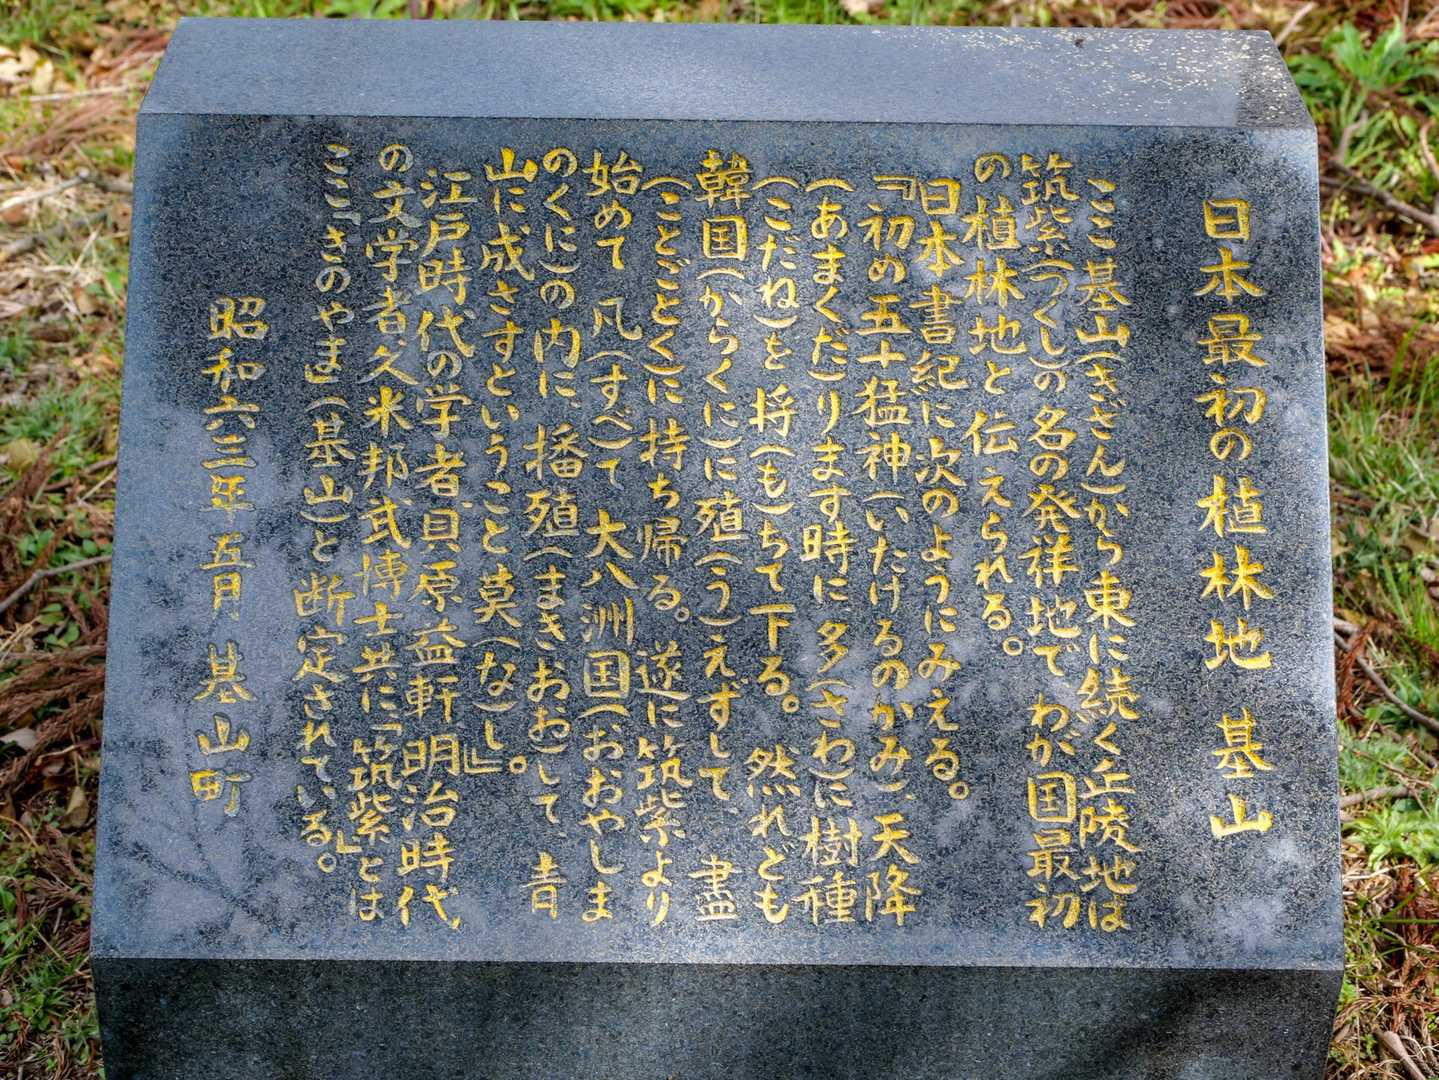 日本最初の植林地 基山
ここ基山(きざん)から東に続く丘陵地は
筑紫(つくし)の名の発祥地で わが国最初
の植林地と伝えられる。
日本書紀に次のようにみえる。
『初め五十猛神(いたけるのかみ)、天降
(あまくだ)ります時に、多(さわ)に樹種
(こだね)を 将(も)ちて下る。 然れども
韓国(からくに)に殖(う)えずして、 盡
(ことごとく)に持ち帰る。遂に筑紫より
始めて 凡(すべ)て 大八洲国(おおやしま
のくに)の内に、播殖(まきおお)して、青
山に成さずということ莫(な)し』。
江戸時代の学者貝原益軒、明治時代
の文学者久米邦武博士共に「筑紫」とは
ここ「さのやま」(基山)と断定されている。
昭和六三年五月 基山町